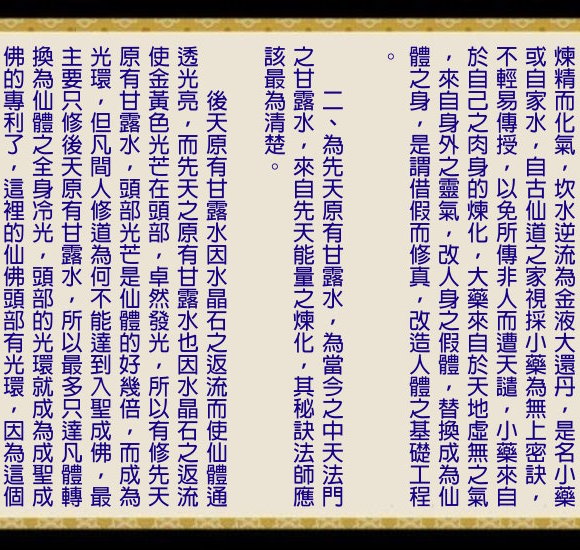 煉精而化氣，坎水逆流為金液大還丹，是名小藥
或自家水，自古仙道之家視採小藥為無上密訣，
不輕易傳授，以免所傳非人而遭天譴，小藥來自
於自己之肉身的煉化，大藥來自於天地虛無之氣
，來自身外之靈氣，改人身之假體，替換成為仙
體之身，是謂借假而修真，改造人體之基礎工程
。
二、為先天原有甘露水，為當今之中天法門
之甘露水，來自先天能量之煉化，其秘訣法師應
該最為清楚。
後天原有甘露水因水晶石之返流而使仙體通
透光亮，而先天之原有甘露水也因水晶石之返流
使金黃色光芒在頭部，卓然發光，所以有修先天
原有甘露水，頭部光芒是仙體的好幾倍，而成為
光環，但凡間人修道為何不能達到入聖成佛，最
主要只修後天原有甘露水，所以最多只達凡體轉
換為仙體之全身冷光，頭部的光環就成為成聖成
佛的專利了，這裡的仙佛頭部有光環，因為這個